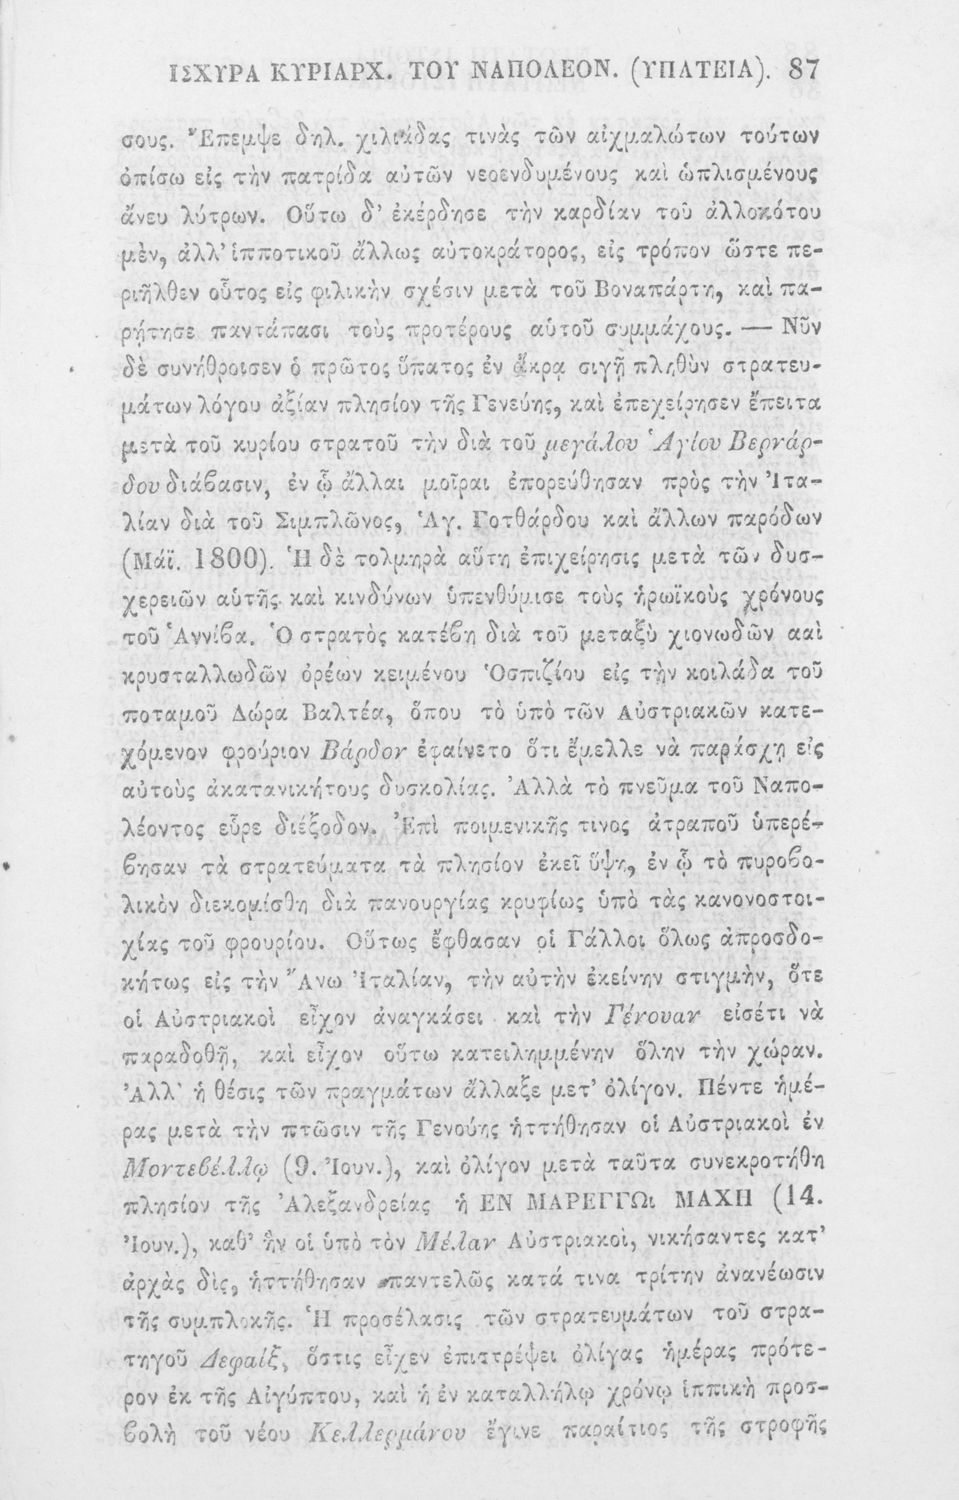 ΙΣΧΥΡΑ ΚΥΡΙΑΡΧ. ΤΟΥ ΝΑΠΟΛΕΟΝ. (ΥΠΑΤΕΙΑ). 87
σους. Ἔπεμψε δηλ. χιλιάδας τινὰς τῶν αἰχμαλώτων τούτων
ὀπίσω εἰς τὴν πατρίδα αὐτῶν νεοενδυμένους καὶ ὡπλισμένους
ἄνευ λύτρων. Οὕτω δ' ἐκέρδησε τὴν καρδίαν τοῦ ἀλλοκότου
μὲν, ἀλλ' ἱπποτικοῦ ἄλλως αὐτοκράτορος, εἰς τρόπον ὥστε πε-
ριῆλθεν οὗτος εἰς φιλικὴν σχέσιν μετὰ τοῦ Βοναπάρτη, καὶ πα-
ρῄτησε παντάπασι τοὺς προτέρους αὑτοῦ συμμάχους. — Νῦν
δὲ συνήθροισεν ὁ πρῶτος ὕπατος ἐν ἄκρᾳ σιγῇ πληθὺν στρατευ-
μάτων λόγου ἀξίαν πλησίον τῆς Γενεύης, καὶ ἐπεχείρησεν ἔπειτα
μετὰ τοῦ κυρίου στρατοῦ τὴν διὰ τοῦ μεγάλου Ἁγίου Βερνάρ-
δου διάβασιν, ἐν ᾧ ἄλλαι μοῖραι ἐπορεύθησαν πρὸς τὴν Ἰτα-
λίαν διὰ τοῦ Σιμπλῶνος, Ἁγ. Γοτθάρδου καὶ ἄλλων παρόδων
(Μάϊ. 1800). Ἡ δὲ τολμηρὰ αὕτη ἐπιχείρησις μετὰ τῶν δυσ-
χερειῶν αὑτῆς καὶ κινδύνων ὑπενθύμισε τοὺς ἡρωϊκοὺς χρόνους
τοῦ Ἀννίβα. Ὁ στρατὸς κατέβη διὰ τοῦ μεταξὺ χιονωδῶν ααὶ
κρυσταλλωδῶν ὀρέων κειμένου Ὁσπιζίου εἰς τὴν κοιλάδα τοῦ
ποταμοῦ Δώρα Βαλτέα, ὅπου τὸ ὑπὸ τῶν Αὐστριακῶν κατε-
χόμενον φρούριον Βάρδον ἐφαίνετο ὅτι ἔμελλε νὰ παράσχῃ εἰς
αὐτοὺς ἀκατανικήτους δυσκολίας. Ἀλλὰ τὸ πνεῦμα τοῦ Ναπο-
λέοντος εὗρε διέξοδον. Ἐπὶ ποιμενικῆς τινος ἀτραποῦ ὑπερέ-
βησαν τὰ στρατεύματα τὰ πλησίον ἐκεῖ ὕψη, ἐν ᾧ τὸ πυροβο-
λικὸν διεκομίσθη διὰ πανουργίας κρυφίως ὑπὸ τὰς κανονοστοι-
χίας τοῦ φρουρίου. Οὕτως ἔφθασαν οἱ Γάλλοι ὅλως ἀπροσδο-
κήτως εἰς τὴν Ἄνω Ἰταλίαν, τὴν αὐτὴν ἐκείνην στιγμὴν, ὅτε
οἱ Αὐστριακοὶ εἶχον ἀναγκάσει καὶ τὴν Γένουαν εἰσέτι νὰ
παραδοθῇ, καὶ εἶχον οὕτω κατειλημμένην ὅλην τὴν χώραν.
Ἀλλ' ἡ θέσις τῶν πραγμάτων ἄλλαξε μετ' ὀλίγον. Πέντε ἡμέ-
ρας μετὰ τὴν πτῶσιν τῆς Γενούης ἡττήθησαν οἱ Αὐστριακοὶ ἐν
Μοντεβέλλῳ (9. Ἰουν.), καὶ ὀλίγον μετὰ ταῦτα συνεκροτήθη
πλησίον τῆς Ἀλεξανδρείας ἡ ΕΝ ΜΑΡΕΓΓΩι ΜΑΧΗ (14.
Ἰουν.), καθ' ἣν οἱ ὑπὸ τὸν Μέλαν Αὐστριακοὶ, νικήσαντες κατ'
ἀρχὰς δὶς, ἡττήθησαν παντελῶς κατά τινα τρίτην ἀνανέωσιν
τῆς συμπλοκῆς. Ἡ προσέλασις τῶν στρατευμάτων τοῦ στρα-
τηγοῦ Δεφαὶξ, ὅστις εἶχεν ἐπιστρέψει ὀλίγας ἡμέρας πρότε-
ρον ἐκ τῆς Αἰγύπτου, καὶ ἡ ἐν καταλλήλῳ χρόνῳ ἱππικὴ προσ-
βολὴ τοῦ νέου Κελλερμάνου ἔγινε παραίτιος τῆς στροφῆς